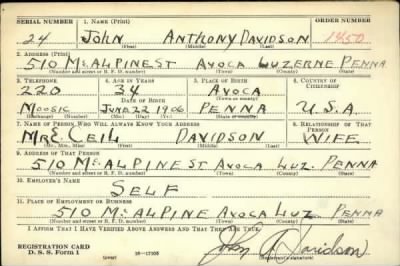 SERIAL NUMBER 1. NAME (Print) ORDER NUMBER
24 JOHN ANTHONY DAVIDSON 1450
(First) (Middle) (Last)
2. ADDRESS (Print)
510 Mc ALPINE ST AVOCA LUZERNE PENNA
(Number and street or R. F. D. number) (Town) (County) (State)
3. TELEPHONE 4. AGE IN YEARS 5. PLACE OF BIRTH 6. COUNTRY OF CITIZENSHIP
220 34 AVOCA
DATE OF BIRTH (Town or county)
MOOSIC JUNE 22 1906 PENNA U.S.A.
(Exchange) (Number) (Mo.) (Day) (Yr.) (State or country)
7. NAME OF PERSON WHO WILL ALWAYS KNOW YOUR ADDRESS 8. RELATIONSHIP OF THAT PERSON
MRS. CEIL DAVIDSON WIFE
(Mr., Mrs., Miss) (First) (Middle) (Last)
9. ADDRESS OF THAT PERSON
510 Mc ALPINE ST AVOCA LUZ. PENNA
(Number and street or R. F. D. number) (Town) (County) (State)
10. EMPLOYER'S NAME
SELF
11. PLACE OF EMPLOYMENT OR BUSINESS
510 Mc ALPINE AVOCA LUZ PENNA
(Number and street or R. F. D. number) (Town) (County) (State)
I AFFIRM THAT I HAVE VERIFIED ABOVE ANSWERS AND THAT THEY ARE TRUE.
REGISTRATION CARD
D. S. S. Form 1 (over) 16—17105 John A. Davidson
(Registrant's signature)